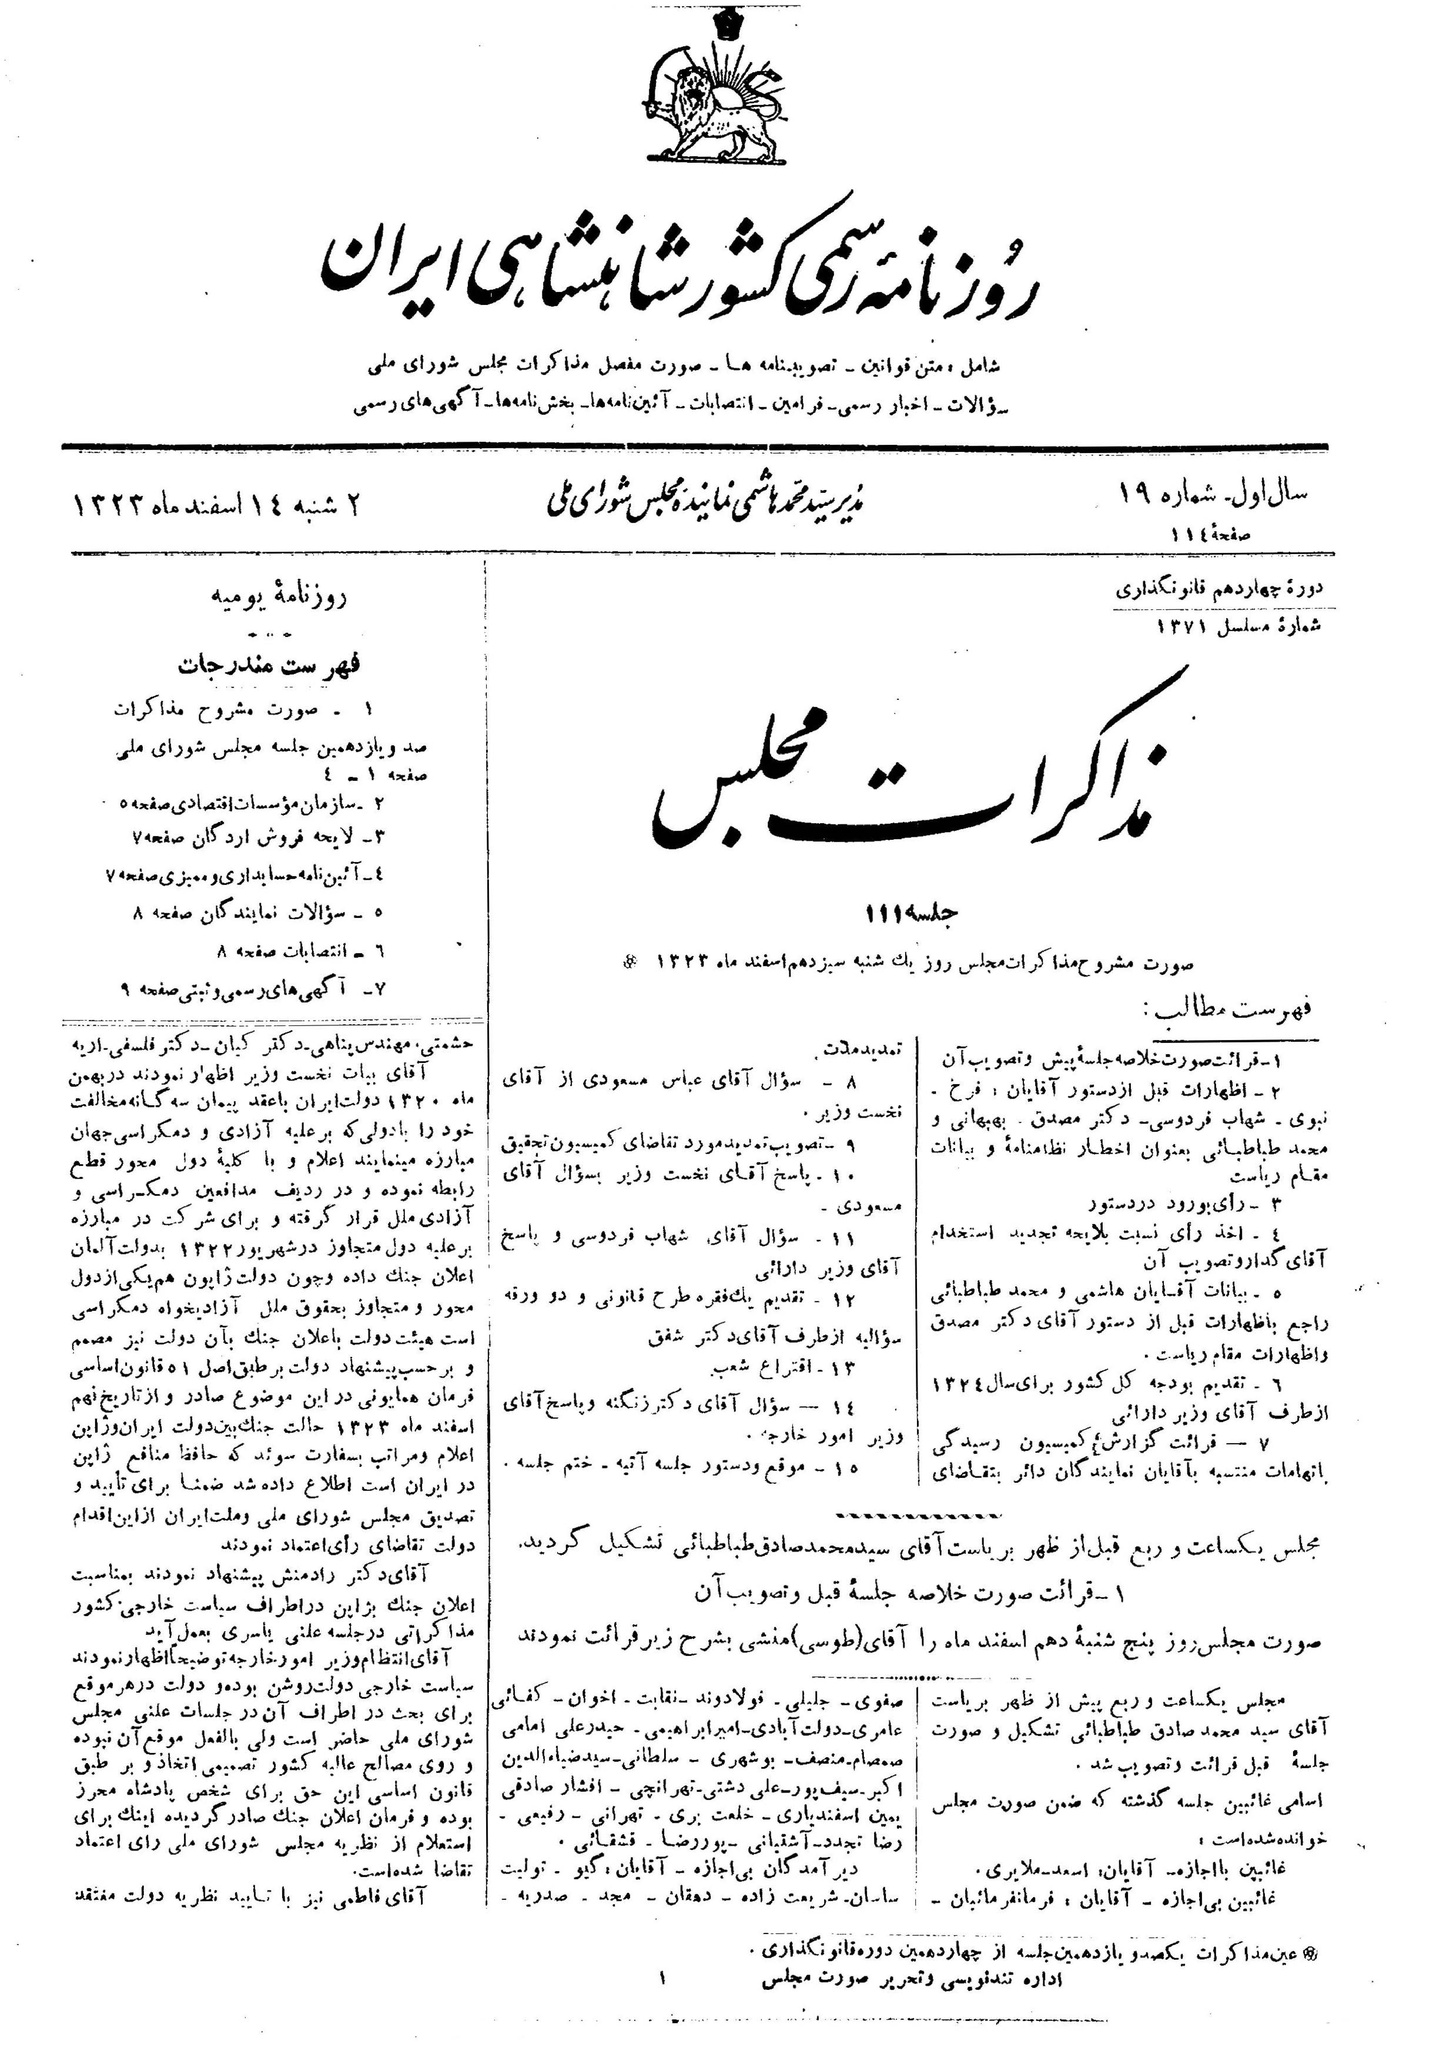 روزنامهٔ رسمی کشور شاهنشاهی ایران
شامل : متن قوانین - تصویبنامه ها - صورت مفصل مذاکرات مجلس شورای ملی
سؤالات - اخبار رسمی - فرامین - انتصابات - آئین‌نامه‌ها - بخش‌نامه‌ها - آگهی‌های رسمی
سال اول - شماره ۱۹
صفحهٔ ۱۱٤
مدیر سید محمد هاشمی نمایندهٔ مجلس شورای ملی
۲ شنبه ۱٤ اسفند ماه ۱۳۲۳
دورهٔ چهاردهم قانونگذاری
شمارهٔ مسلسل ۱۳۷۱
مذاکرات مجلس
جلسه ۱۱۱
صورت مشروح مذاکرات مجلس روز یك شنبه سیزدهم اسفند ماه ۱۳۲۳ *
فهرست مطالب :
۱ - قرائت صورت خلاصه جلسهٔ پیش و تصویب آن
۲ - اظهارات قبل از دستور آقایان : فرخ -
نبوی - شهاب فردوسی - دکتر مصدق . بهبهانی و
محمد طباطبائی بعنوان اخطار نظامنامهٔ و بیانات
مقام ریاست
۳ - رأی بورود در دستور
٤ - اخذ رأی نسبت بلایحه تجدید استخدام
آقای گدار و تصویب آن
٥ - بیانات آقایان هاشمی و محمد طباطبائی
راجع باظهارات قبل از دستور آقای دکتر مصدق
و اظهارات مقام ریاست .
٦ - تقدیم بودجه کل کشور برای سال ۱۳۲٤
از طرف آقای وزیر دارائی
۷ — قرائت گزارش کمیسیون رسیدگی
باتهامات منتسبه بآقایان نمایندگان دائر بتقاضای
تمدید مدت .
۸ - سؤال آقای عباس مسعودی از آقای
نخست وزیر .
۹ - تصویب تمدید مورد تقاضای کمیسیون تحقیق
۱۰ - پاسخ آقای نخست وزیر بسؤال آقای
مسعودی -
۱۱ - سؤال آقای شهاب فردوسی و پاسخ
آقای وزیر دارائی
۱۲ - تقدیم یك فقره طرح قانونی و دو ورقه
سؤالیه از طرف آقای دکتر شفق
۱۳ - اقتراع شعب
۱٤ — سؤال آقای دکتر زنگنه و پاسخ آقای
وزیر امور خارجه .
۱٥ - موقع و دستور جلسه آتیه - ختم جلسه .
مجلس یکساعت و ربع قبل از ظهر بریاست آقای سید محمد صادق طباطبائی تشکیل گردید.
۱ - قرائت صورت خلاصه جلسهٔ قبل و تصویب آن
صورت مجلس روز پنج شنبهٔ دهم اسفند ماه را آقای (طوسی) منشی بشرح زیر قرائت نمودند
مجلس یکساعت و ربع پیش از ظهر بریاست
آقای سید محمد صادق طباطبائی تشکیل و صورت
جلسهٔ قبل قرائت و تصویب شد .
اسامی غائبین جلسه گذشته که ضمن صورت مجلس
خوانده شده است :
غائبین با اجازه - آقایان : اسعد - ملایری .
غائبین بی اجازه - آقایان : فرمانفرمائیان -
صفوی - جلیلی - فولادوند - نقابت - اخوان - کفائی
عامری - دولت آبادی - امیر ابراهیمی - حیدرعلی امامی
صمصام - منصف - بوشهری - سلطانی - سید ضیاءالدین
اکبر - سیف پور - علی دشتی - تهرانچی - افشار صادقی
یمین اسفندیاری - خلعت بری - تهرانی - رفیعی -
رضا تجدد - آشتیانی - پور رضا - قشقائی .
دیر آمدگان بی اجازه - آقایان : گیو - تولیت
ساسان - شریعت زاده - دهقان - مجد - صدریه -
روزنامهٔ یومیه
فهرست مندرجات
۱ - صورت مشروح مذاکرات
صد و یازدهمین جلسه مجلس شورای ملی
صفحه ۱ - ٤
۲ - سازمان مؤسسات اقتصادی صفحه ٥
۳ - لایحه فروش اردکان صفحه ۷
٤ - آئین نامه حسابداری و ممیزی صفحه ۷
٥ - سؤالات نمایندگان صفحه ۸
٦ - انتصابات صفحه ۸
۷ - آگهی های رسمی و ثبتی صفحه ۹
حشمتی . مهندس پناهی - دکتر کیان - دکتر فلسفی . اریه
آقای بیات نخست وزیر اظهار نمودند در بهمن
ماه ۱۳۲۰ دولت ایران با عقد پیمان سه گانه مخالفت
خود را با دولی که بر علیه آزادی و دمکراسی جهان
مبارزه مینمایند اعلام و با کلیهٔ دول محور قطع
رابطه نموده و در ردیف مدافعین دمکراسی و
آزادی ملل قرار گرفته و برای شرکت در مبارزه
بر علیه دول متجاوز در شهریور ۱۳۲۲ بدولت آلمان
اعلان جنك داده و چون دولت ژاپون هم یکی از دول
محور و متجاوز بحقوق ملل آزادیخواه دمکراسی
است هیئت دولت باعلان جنك بآن دولت نیز مصمم
و بر حسب پیشنهاد دولت بر طبق اصل ٥۱ قانون اساسی
فرمان همایونی در این موضوع صادر و از تاریخ نهم
اسفند ماه ۱۳۲۳ حالت جنك بین دولت ایران و ژاپن
اعلام و مراتب بسفارت سوئد که حافظ منافع ژاپن
در ایران است اطلاع داده شد ضمنا برای تأیید و
تصدیق مجلس شورای ملی و ملت ایران از این اقدام
دولت تقاضای رأی اعتماد نمودند
آقای دکتر رادمنش پیشنهاد نمودند بمناسبت
اعلان جنك بژاپن در اطراف سیاست خارجی کشور
مذاکراتی در جلسه علنی یا سری بعمل آید
آقای انتظام وزیر امور خارجه توضیحاً اظهار نمودند
سیاست خارجی دولت روشن بوده و دولت در هر موقع
برای بحث در اطراف آن در جلسات علنی مجلس
شورای ملی حاضر است ولی بالفعل موقع آن نبوده
و روی مصالح عالیه کشور تصمیمی اتخاذ و بر طبق
قانون اساسی این حق برای شخص پادشاه محرز
بوده و فرمان اعلان جنك صادر گردیده اینك برای
استعلام از نظریه مجلس شورای ملی رای اعتماد
تقاضا شده است.
آقای فاطمی نیز با تایید نظریه دولت معتقد
* عین مذاکرات یکصد و یازدهمین جلسه از چهاردهمین دوره قانونگذاری .
اداره تندنویسی و تحریر صورت مجلس
۱